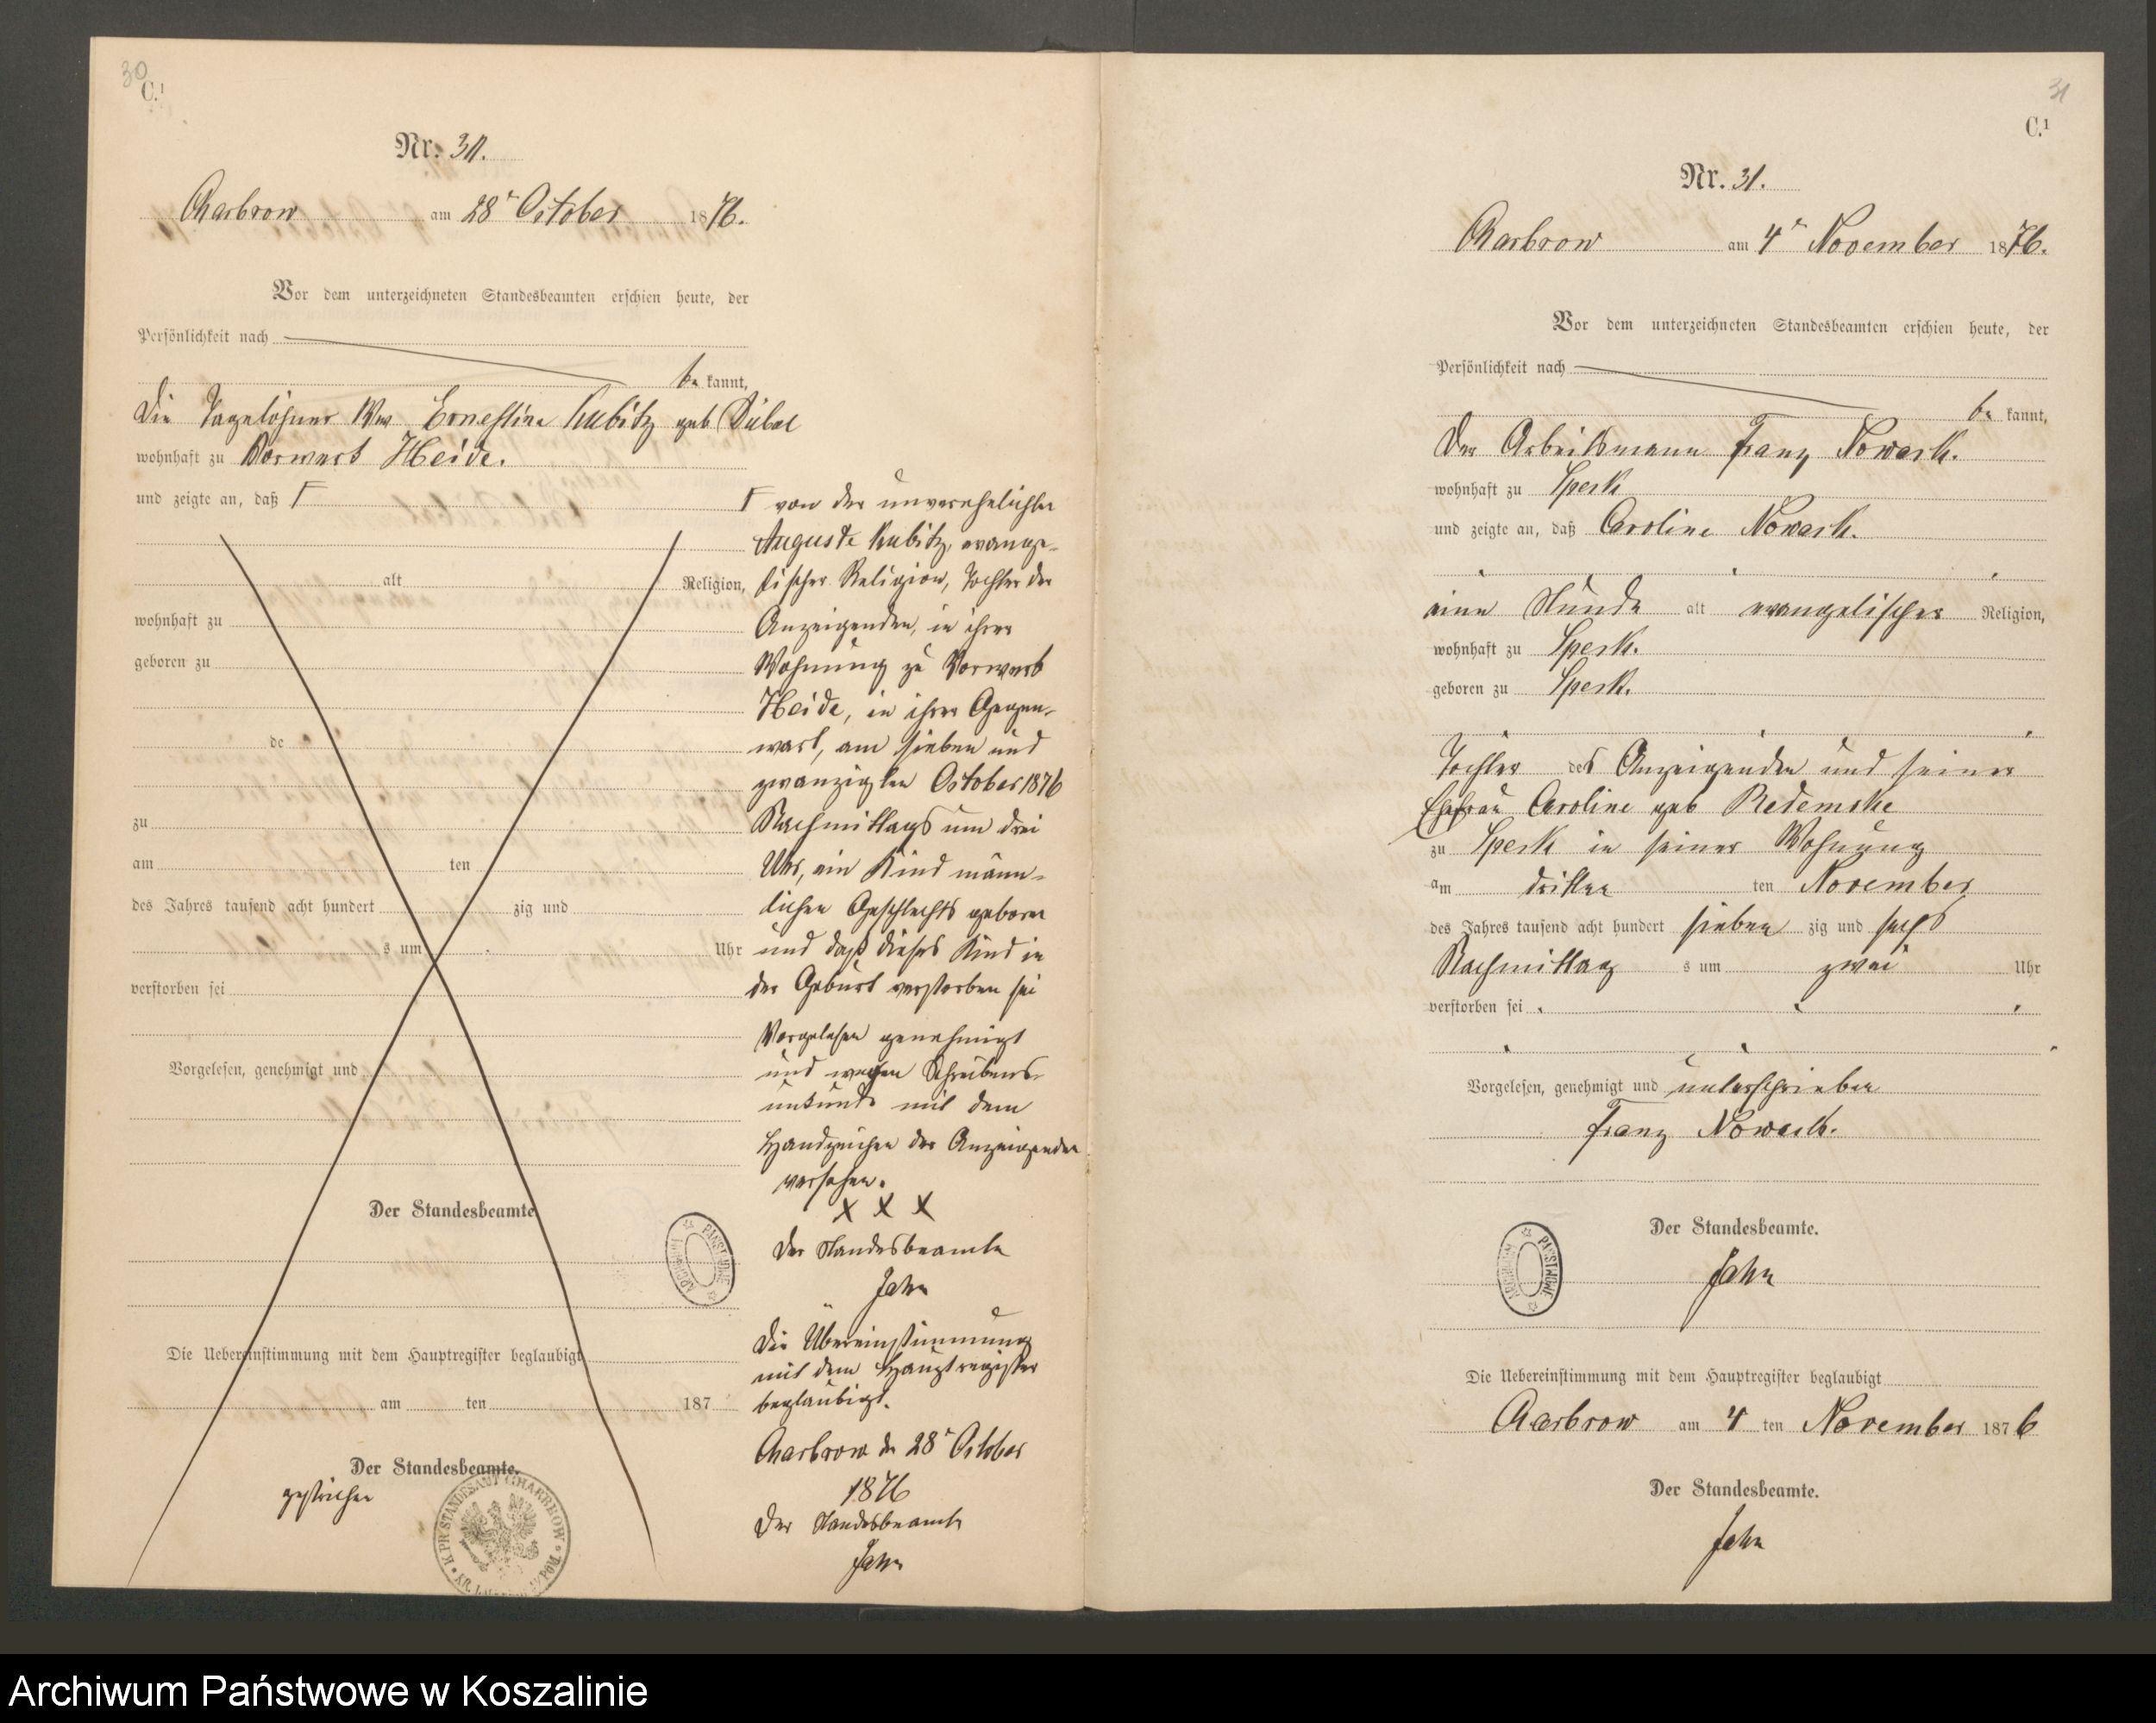 30
C.¹
Nr. 30.
Charbrow am 28ᵗ October 1876.
Vor dem unterzeichneten Standesbeamten erschien heute, der
Persönlichkeit nach
be kannt,
Die Tagelöhner Ww Ernestine Kubitz geb Dübel
wohnhaft zu Vorwerk Heide.
und zeigte an, daß Γ
alt Religion,
wohnhaft zu
geboren zu
de
zu
am ten
des Jahres tausend acht hundert zig und
s um Uhr
verstorben sei
Vorgelesen, genehmigt und
Der Standesbeamte
Die Uebereinstimmung mit dem Hauptregister beglaubigt
am ten 187
Der Standesbeamte.
gestrichen
K. PR. STANDESAMT CHARBROW
Γ von der unverehelichten
Auguste Kubitz, evange-
lischer Religion, Tochter der
Anzeigenden, in ihrer
Wohnung zu Vorwerk
Heide, in ihrer Gegen-
wart, am sieben und
zwanzigsten October 1876
Nachmittags um drei
Uhr, ein Kind männ-
lichen Geschlechts geboren
und daß dieses Kind in
der Geburt verstorben sei
Vorgelesen genehmigt
und wegen Schreibens-
unkunde mit dem
Handzeichen der Anzeigenden
versehen.
X X X
Der Standesbeamte
Jahn
ARCHIWUM PAŃSTWOWE
Die Übereinstimmung
mit dem Hauptregister
beglaubigt.
Charbrow den 28ᵗ October
1876
Der Standesbeamte
Jahn
31
C.¹
Nr. 31.
Charbrow am 4ᵗ November 1876.
Vor dem unterzeichneten Standesbeamten erschien heute, der
Persönlichkeit nach
be kannt,
Der Arbeitsmann Franz Nowack.
wohnhaft zu Speck
und zeigte an, daß Caroline Nowack.
eine Stunde alt evangelischer Religion,
wohnhaft zu Speck.
geboren zu Speck.
Tochter des Anzeigenden und seiner
Ehefrau Caroline geb Redemske
zu Speck in seiner Wohnung
am dritten ten November
des Jahres tausend acht hundert sieben zig und sechs
Nachmittag s um zwei Uhr
verstorben sei
Vorgelesen, genehmigt und unterschrieben
Franz Nowack.
Der Standesbeamte.
Jahn
ARCHIWUM PAŃSTWOWE
Die Uebereinstimmung mit dem Hauptregister beglaubigt
Charbrow am 4 ten November 1876
Der Standesbeamte.
Jahn
Archiwum Państwowe w Koszalinie